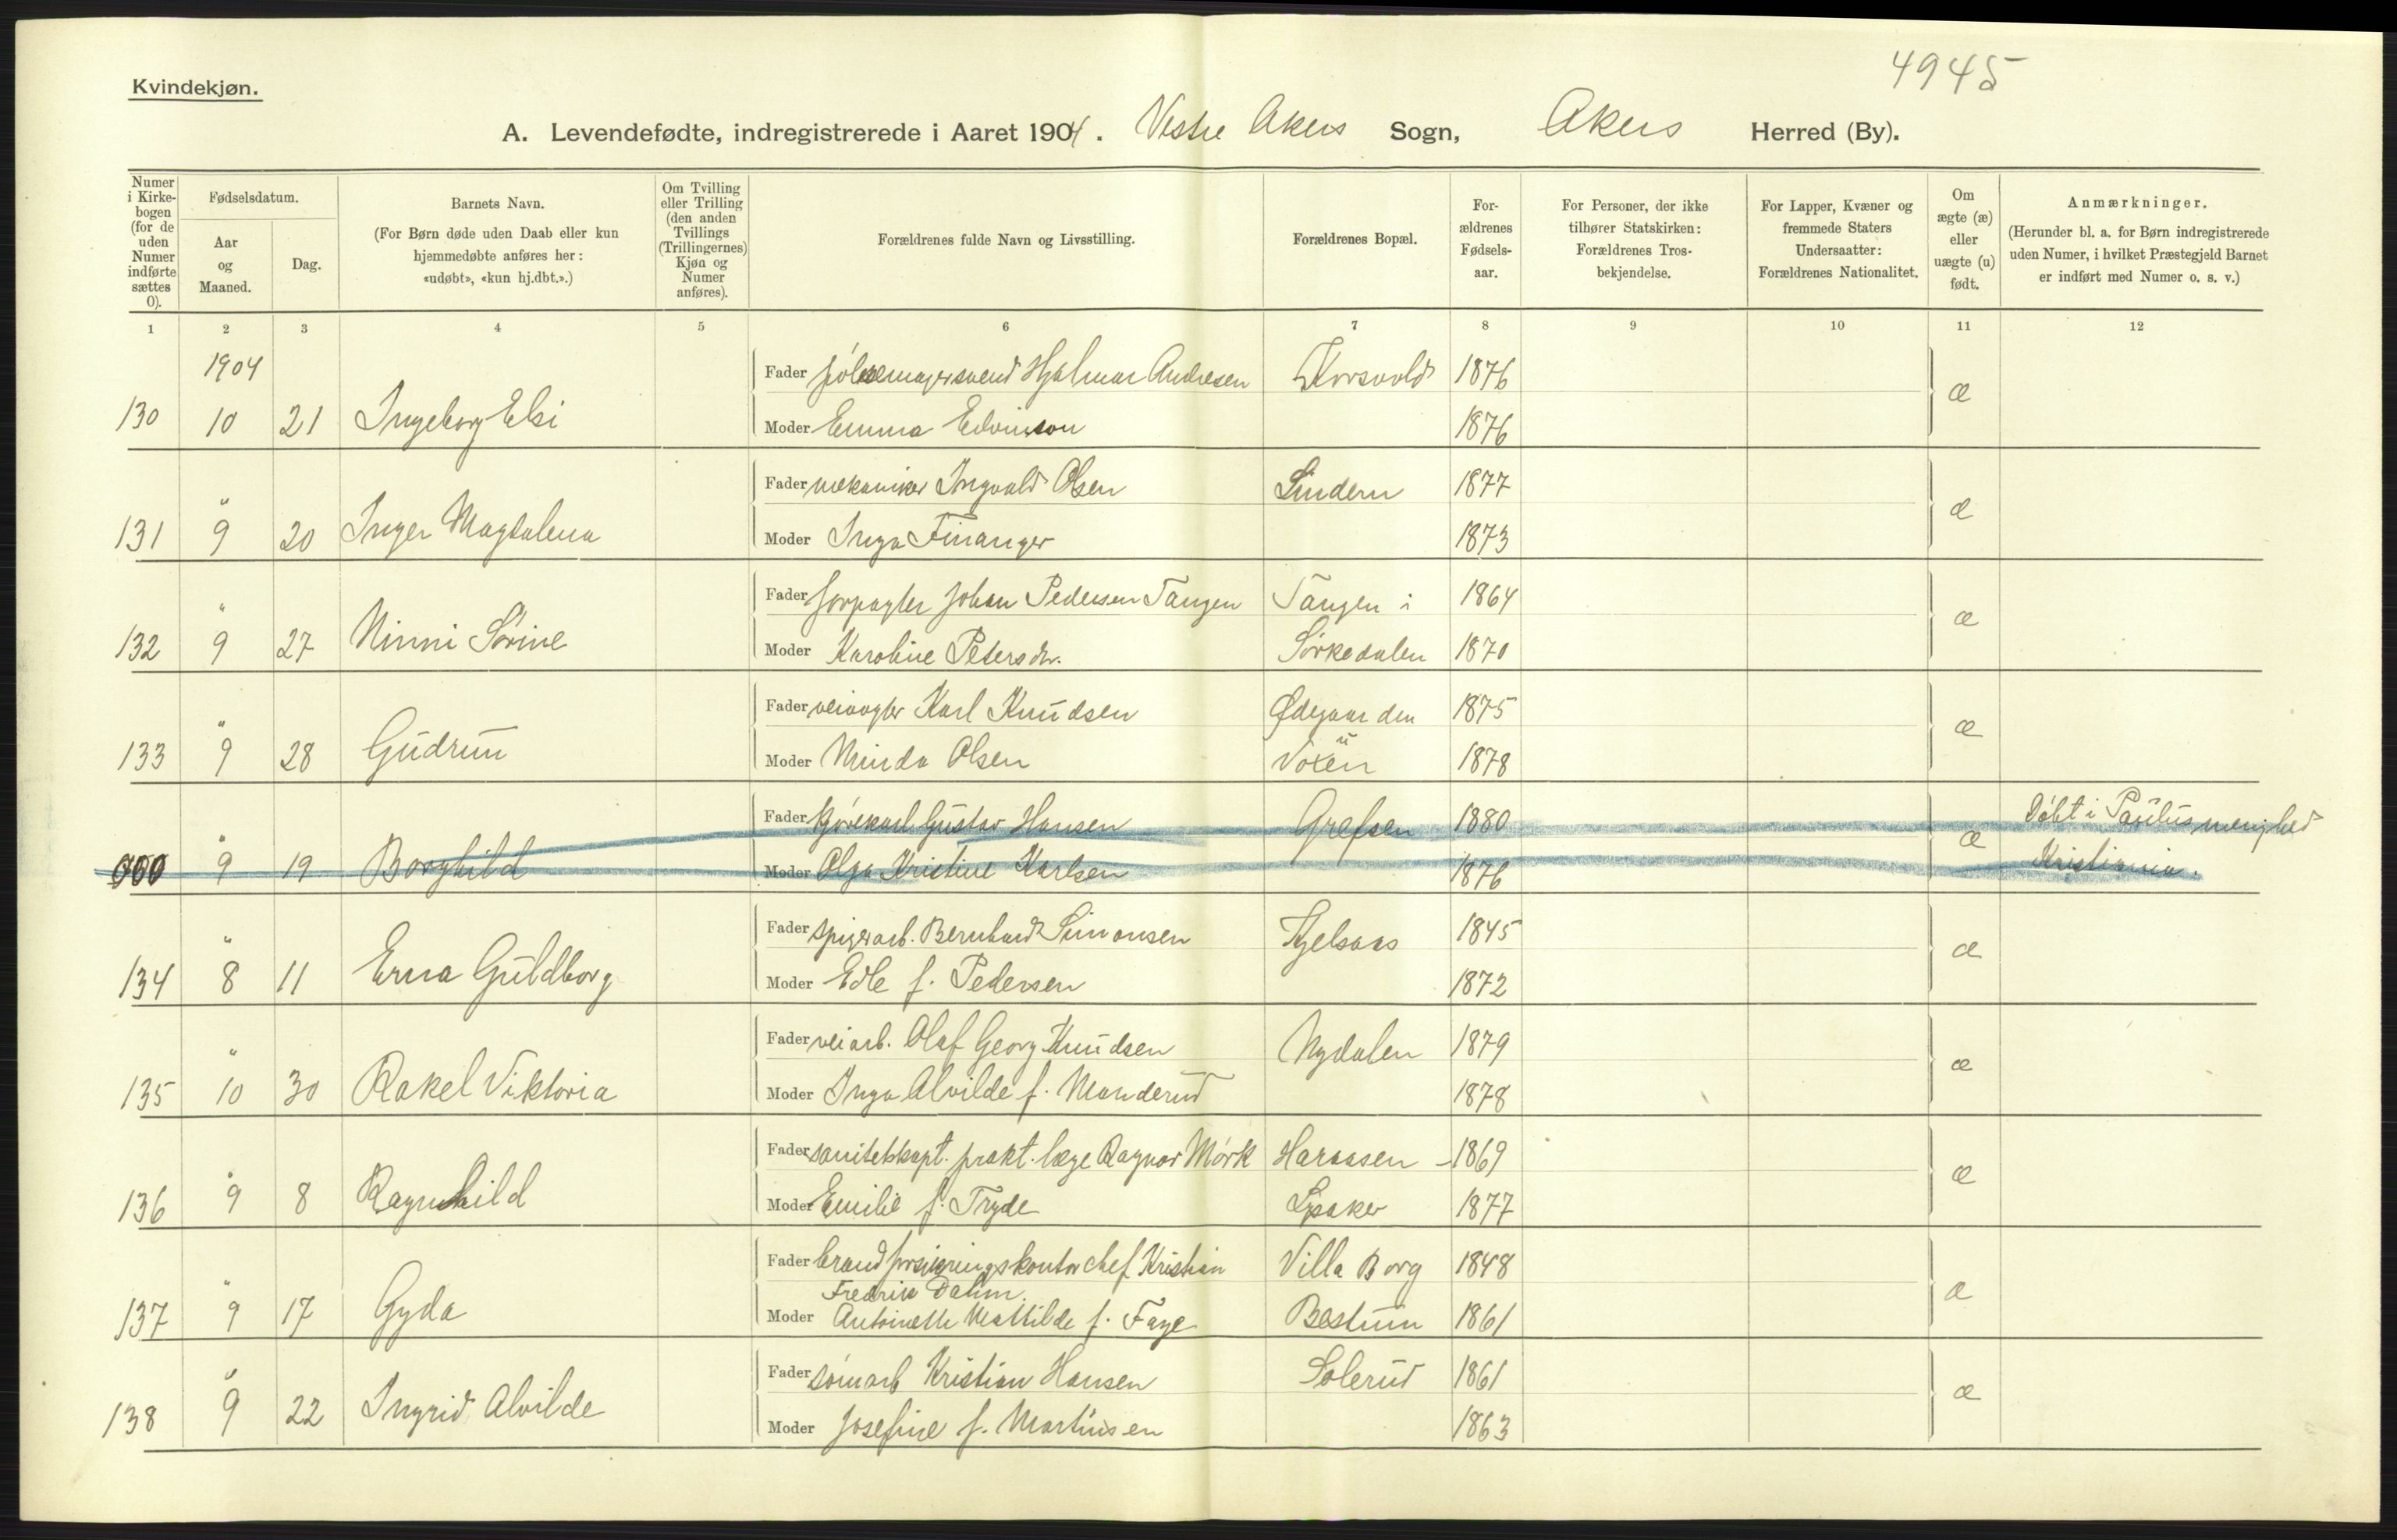 4945
Kvindekjøn.
A. Levendefødte, indregistrerede i Aaret 1904. Vestre Akers Sogn, Akers Herred (By).
Numer i Kirkebogen (for de uden Numer indførte sættes 0).
Fødselsdatum.
Aar og Maaned.
Dag.
Barnets Navn.
(For Børn døde uden Daab eller kun hjemmedøbte anføres her: «udøbt», «kun hj.dbt.».)
Om Tvilling eller Trilling (den anden Tvillings (Trillingernes) Kjøn og Numer anføres).
Forældrenes fulde Navn og Livsstilling.
Forældrenes Bopæl.
Forældrenes Fødselsaar.
For Personer, der ikke tilhører Statskirken: Forældrenes Trosbekjendelse.
For Lapper, Kvæner og fremmede Staters Undersaatter: Forældrenes Nationalitet.
Om ægte (æ) eller uægte (u) født.
Anmærkninger.
(Herunder bl. a. for Børn indregistrerede uden Numer, i hvilket Præstegjeld Barnet er indført med Numer o. s. v.)
1 2 3 4 5 6 7 8 9 10 11 12
1904
Fader pølsemagersvend Hjalmar Andresen Korsvold 1876 æ
130 10 21 Ingeborg Elsi
Moder Emma Edvinson 1876
Fader mekaniker Ingvald Olsen Lindern 1877 æ
131 " 9 20 Inger Magdalena
Moder Inga Finanger 1873
Fader forpagter Johan Pedersen Tangen Tangen i 1864 æ
132 " 9 27 Ninni Sørine
Moder Karoline Petersdr. Sørkedalen 1870
Fader veivogter Karl Knudsen Ødegaarden 1875 æ
133 " 9 28 Gudrun
Moder Minda Olsen Voxen 1878
Fader kjørekarl Gustav Hansen Grefsen 1880 æ Døbt i Paulus menighed
000 " 9 19 Borghild
Moder Olga Kristine Karlsen 1876 Kristiania.
Fader spigerarb. Bernhard Simonsen Kjelsaas 1845 æ
134 " 8 11 Erna Guldborg
Moder Edle f. Pedersen 1872
Fader veiarb. Olaf Georg Knudsen Nydalen 1879 æ
135 " 10 30 Rakel Viktoria
Moder Inga Alvilde f. Manderud 1878
Fader sanitetskapt. prakt. læge Ragnar Mørk Haraasen - 1869 æ
136 " 9 8 Ragnhild
Moder Emilie f. Tryde Lysaker 1877
Fader brandforsikringskontorchef Kristian Villa Borg 1848 æ
Fredrik Dahm
137 " 9 17 Gyda
Moder Antoinette Mathilde f. Faye Bestum 1861
Fader sømarb Kristian Hansen Solerud 1861 æ
138 " 9 22 Ingrid Alvilde
Moder Josefine f. Martinsen 1863